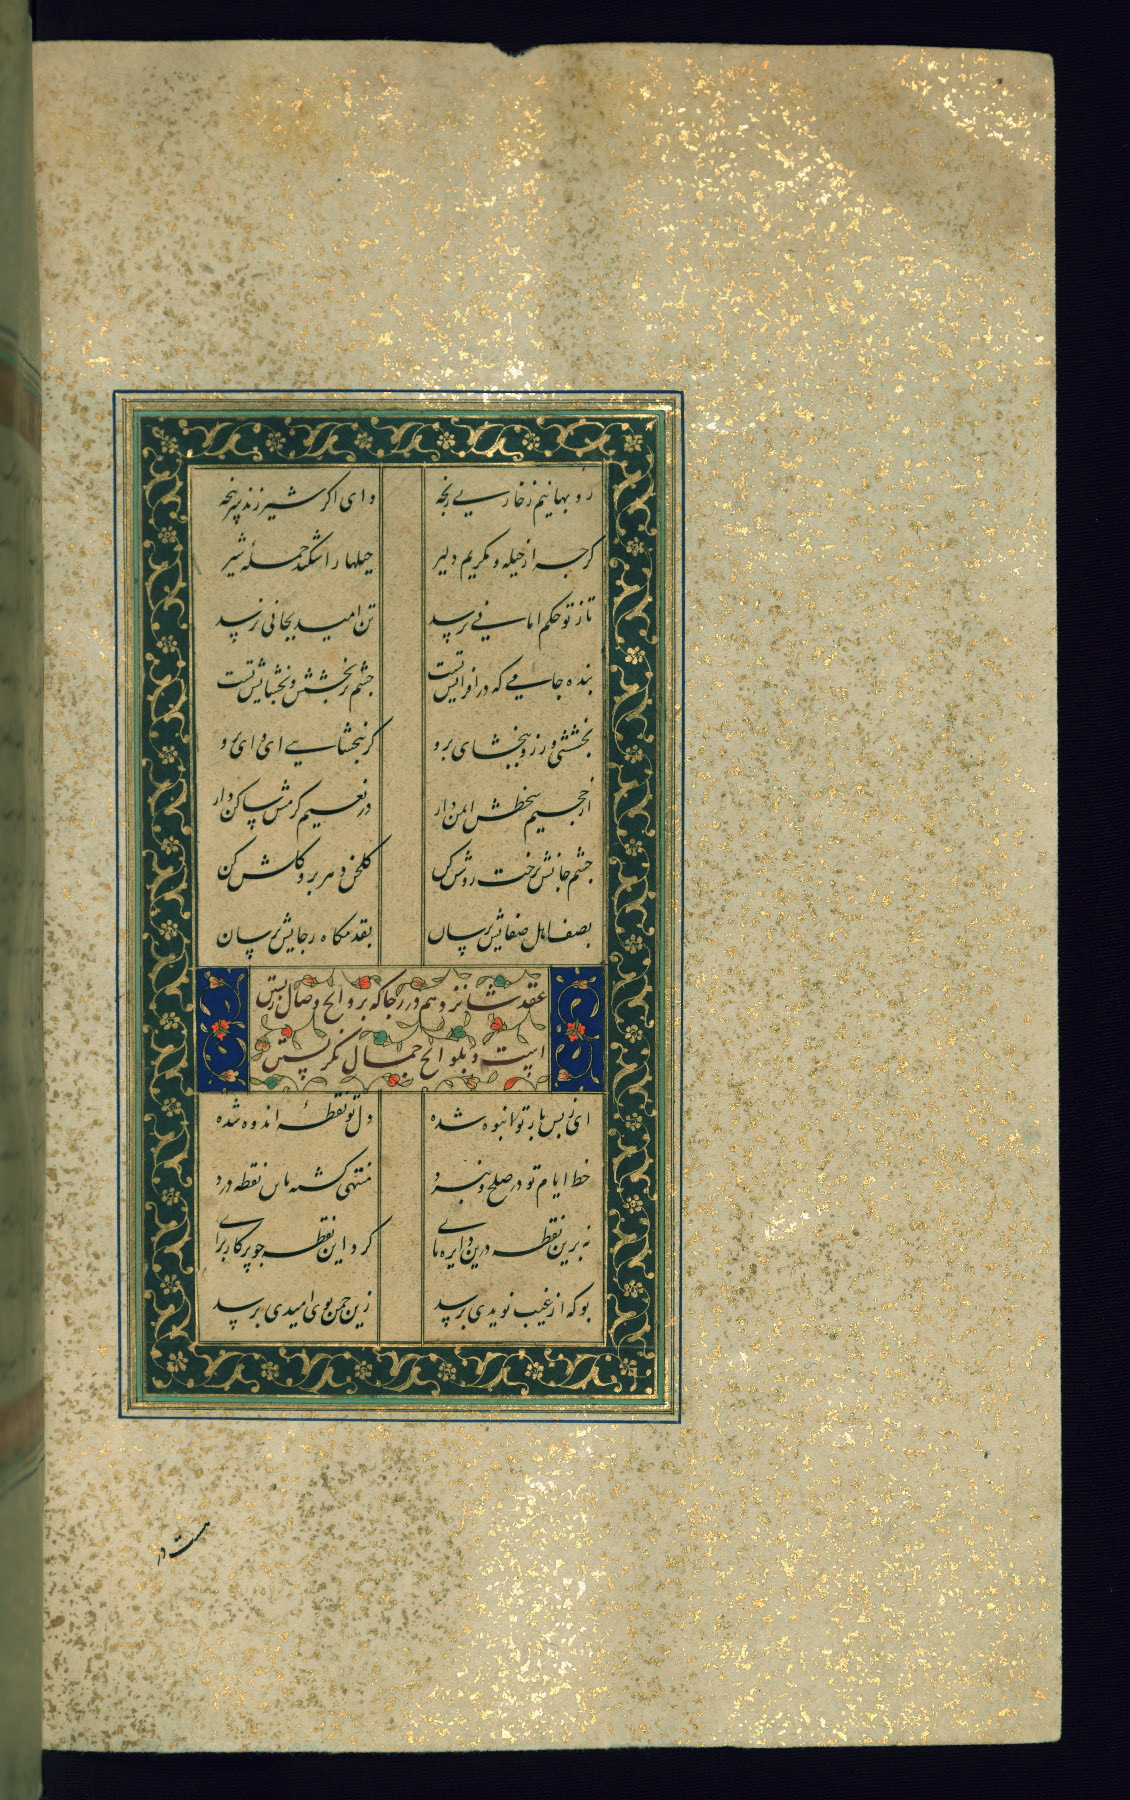 روبهانیم ز خاری رنجه وای اگر شیر زند سرپنجه
کرچه از حیله و مکریم دلیر حیلها را شکند حملهٔ شیر
تا ز تو حکم امانی نرسد تن امید بجانی نرسد
بنده جامی که در افزایش تست چشم بر بخشش و بخشایش تست
بخششی ورز و ببخشای برو کر نبخشایی ای وای برو
از جحیم سخطش ایمن دار در نعیم کرمش ساکن دار
چشم جانش برخت روشن کن کلخن دهر برو کلشن کن
بصف اهل صفایش برسان بقدمکاه رجایش برسان
عقد شانزدهم در رجا که بروایح وصال زیستن
است و بلوایح جمال نکریستن
ای ز بس بار تو انبوه شده دل تو نقطهٔ اندوه شده
خط ایام تو در صلح و نبرد منتهی کشته باین نقطه درد
نه برین نقطه درین دایره پای کرد این نقطه چو پرکار برای
بو که از غیب نویدی برسد زین چمن بوی امیدی برسد
هست در